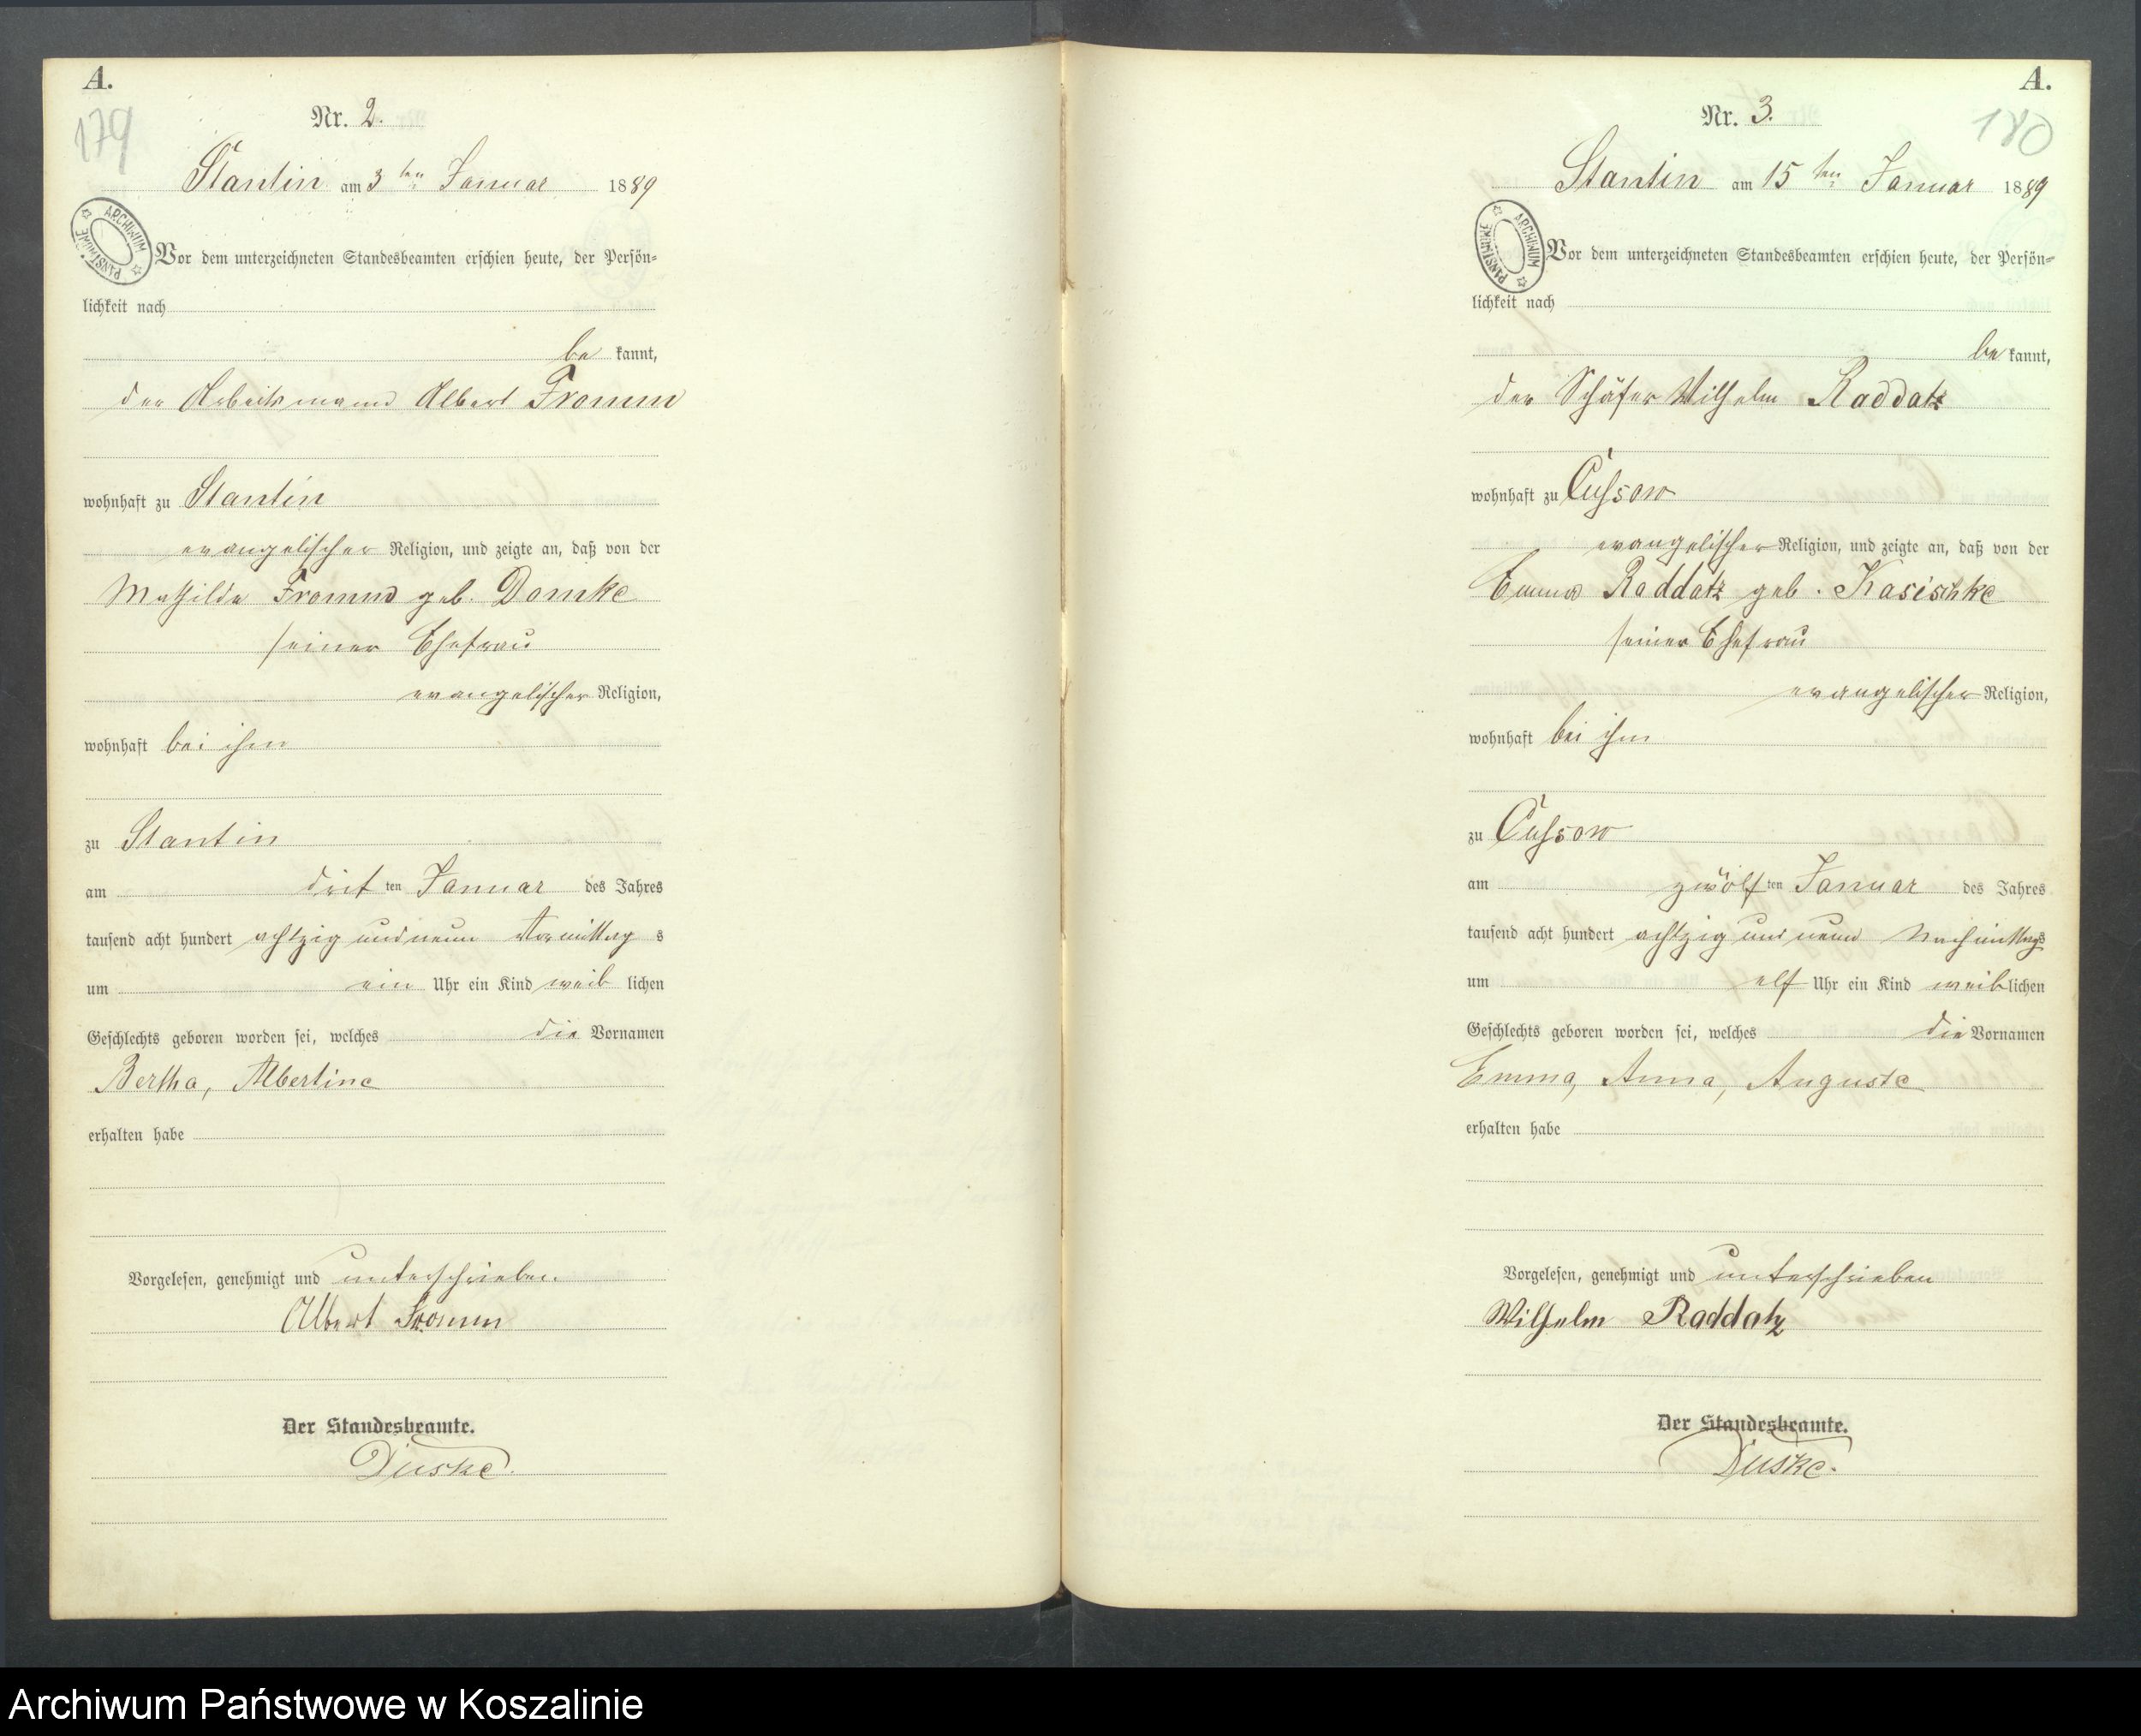 A.
179
Nr. 2.
Stantin am 3ten Januar 1889
ARCHIWUM PAŃSTWOWE
Vor dem unterzeichneten Standesbeamten erschien heute, der Persön=
lichkeit nach
be kannt,
der Arbeitsmann Albert Fromm
wohnhaft zu Stantin
evangelischer Religion, und zeigte an, daß von der
Mathilde Fromm geb. Domke
seiner Ehefrau
evangelischer Religion,
wohnhaft bei ihm
zu Stantin
am drit ten Januar des Jahres
tausend acht hundert achtzig und neun Vormittag s
um ein Uhr ein Kind weib lichen
Geschlechts geboren worden sei, welches die Vornamen
Bertha, Albertine
erhalten habe
Vorgelesen, genehmigt und unterschrieben
Albert Fromm
Der Standesbeamte.
Duske.
A.
180
Nr. 3.
Stantin am 15ten Januar 1889
ARCHIWUM PAŃSTWOWE
Vor dem unterzeichneten Standesbeamten erschien heute, der Persön=
lichkeit nach
be kannt,
der Schäfer Wilhelm Raddatz
wohnhaft zu Cussow
evangelischer Religion, und zeigte an, daß von der
Emma Raddatz geb. Kasischke
seiner Ehefrau
evangelischer Religion,
wohnhaft bei ihm
zu Cussow
am zwölf ten Januar des Jahres
tausend acht hundert achtzig und neun Nachmittags
um elf Uhr ein Kind weiblichen
Geschlechts geboren worden sei, welches die Vornamen
Emma, Anna, Auguste
erhalten habe
Vorgelesen, genehmigt und unterschrieben
Wilhelm Raddatz
Der Standesbeamte.
Duske.
Archiwum Państwowe w Koszalinie